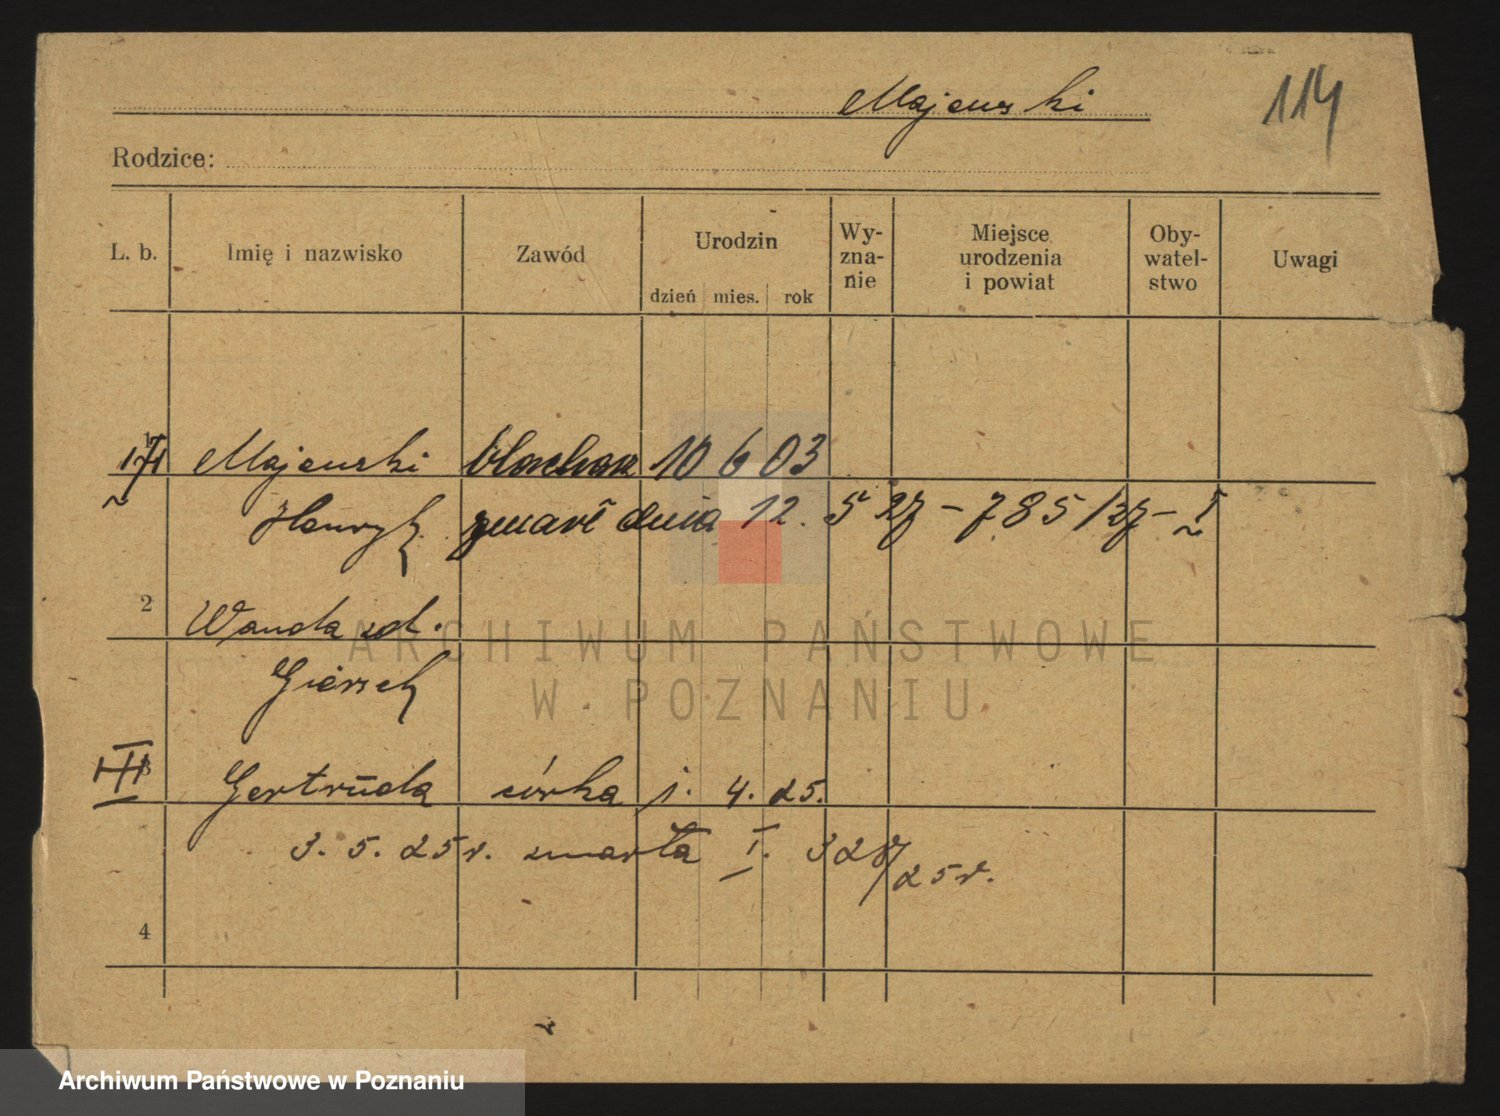 Majewski
114
Rodzice:
L. b. Imię i nazwisko Zawód Urodzin dzień mies. rok Wy-zna-nie Miejsce urodzenia i powiat Oby-watel-stwo Uwagi
1 Majewski blacharz 10 6 03
Henryk zmarł dnia 12. 5 27 – 785/27 – I
2 Wanda zd.
Giersch
3 Gertruda córka 1. 4. 25.
3. 5. 25 r. zmarła I. 328/25 r.
4
ARCHIWUM PAŃSTWOWE
W POZNANIU
Archiwum Państwowe w Poznaniu